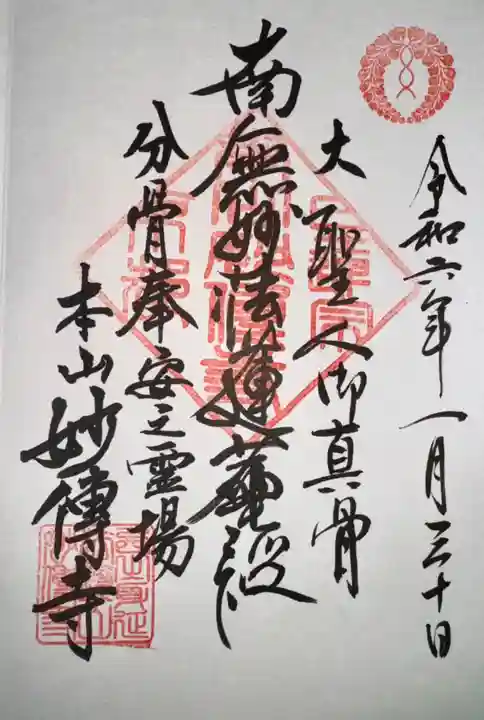 令和六年一月三十日
大聖人御真骨
南無妙法蓮華経
分骨奉安之霊場
本山妙傳寺